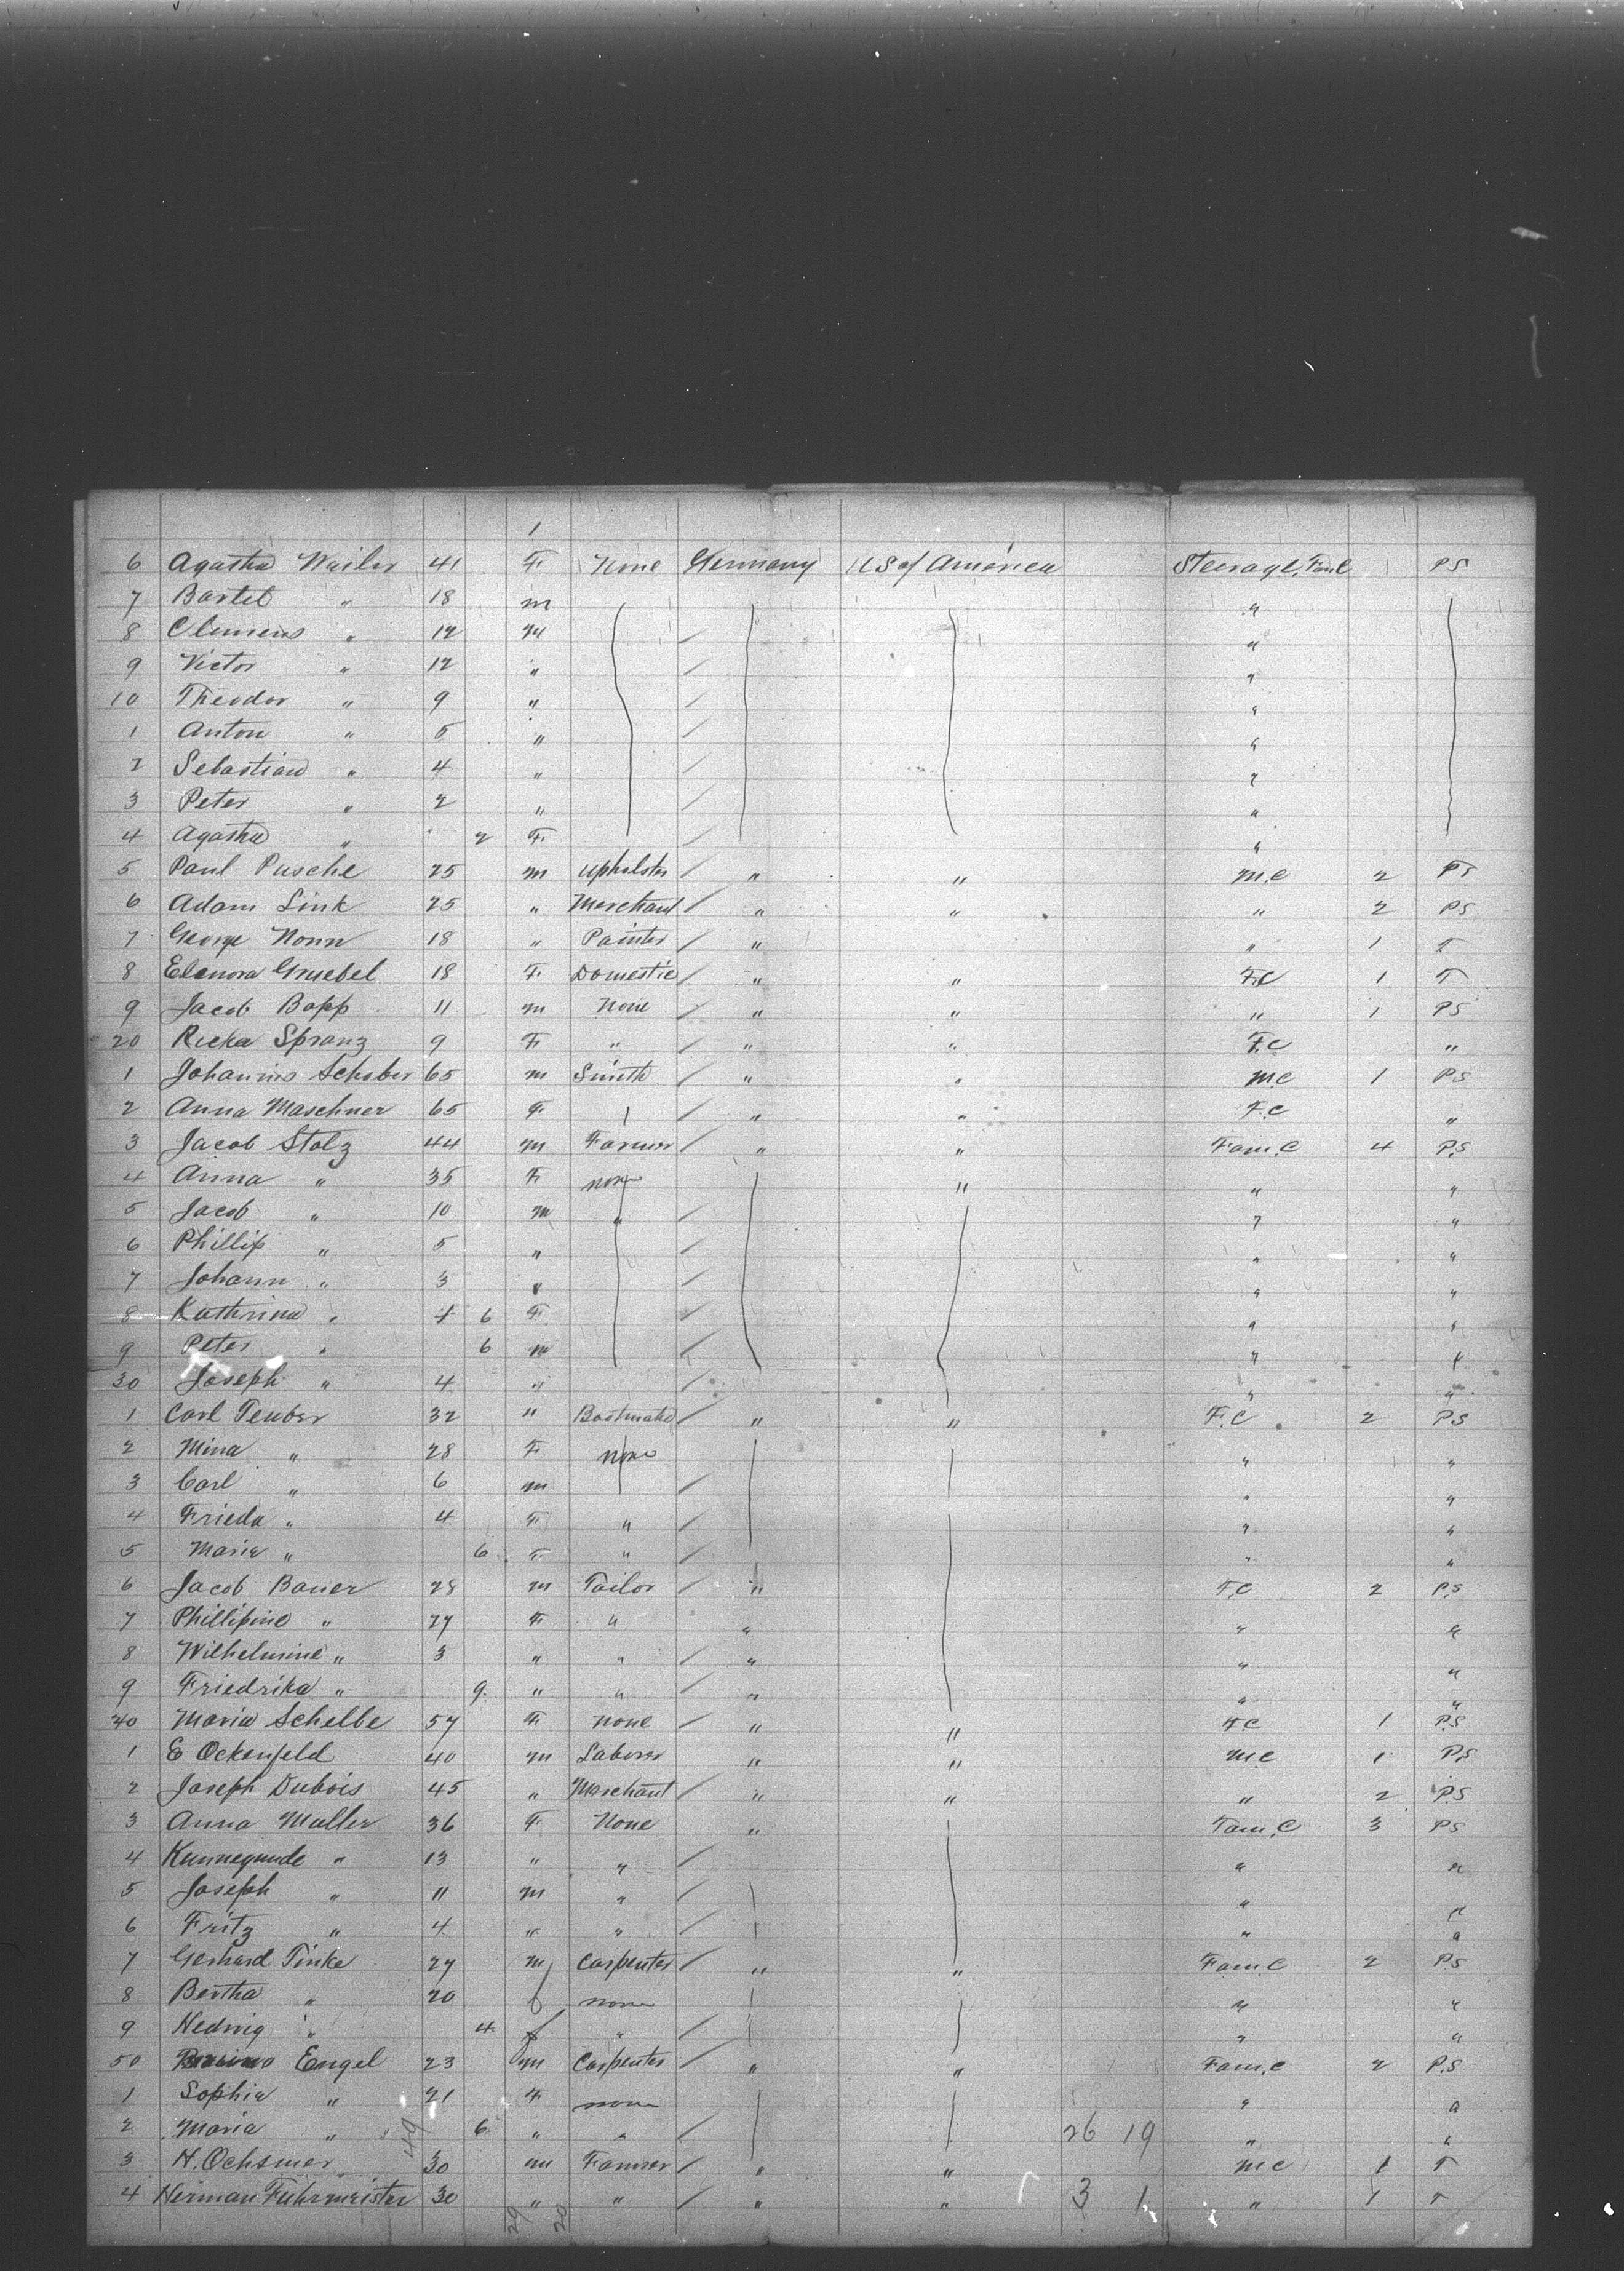 1
6 Agatha Weiler 41 F. None Germany U.S of America Steerage, Fam C PS
7 Bartel " 18 m "
8 Clemens " 12 m "
9 Victor " 12 " "
10 Theodor " 9 " "
1 Anton " 5 " "
2 Sebastian " 4 " "
3 Peter " 2 " "
4 Agatha " 2 F. "
5 Paul Pusche 25 m Upholster " " M.C 2 PS
6 Adam Link 25 " Merchant " " " 2 PS
7 George Nonn 18 " Painter " " " 1 T
8 Elenora Gruebel 18 F. Domestic " " F.C 1 T
9 Jacob Bopp 11 m None " " " 1 PS
20 Ricka Spranz 9 F. " " " F.C "
1 Johannes Schober 65 m Smith " " M C 1 PS
2 Anna Maschner 65 F. " " F.C "
3 Jacob Stolz 44 m Farmer " " Fam. C 4 P.S
4 Anna " 35 F. none " " "
5 Jacob " 10 m " " "
6 Phillip " 5 " " "
7 Johann " 3 " " "
8 Kathrina " 6 F. " "
9 Peter " 6 m " "
30 Joseph " 4 " " "
1 Carl Teuber 32 " " " F.C 2 PS
2 Mina " 28 F. none " "
3 Carl " 6 m " "
4 Frieda " 4 F. " " "
5 Maria " 6 F. " " "
6 Jacob Bauer 28 m Tailor " F.C 2 P.S
7 Phillipine " 27 F. " " " "
8 Wilhelmine " 3 " " " " "
9 Friedrika " 9 " " " " "
40 Maria Schelbe 57 F. None " " F.C 1 P.S
1 E Ockenfeld 40 m Laborer " " M.C 1 P.S
2 Joseph Dubois 45 " Merchant " " " 2 P.S
3 Anna Muller 36 F. None " Fam. C 3 PS
4 Kunnegunde " 13 " " " "
5 Joseph " 11 m " " "
6 Fritz " 4 " " " "
7 Gerhard Tinke 27 m Carpenter " " Fam. C 2 P.S
8 Bertha " 20 f none " "
9 Hedwig " 4 f " " "
50 Engel 23 m Carpenter " " Fam. C 2 P.S
1 Sophia " 21 F none " "
2 Maria " 6 " " 26 19 " "
49
3 H. Ochsner 30 m Farmer " " M C 1 T
4 Herman Fuhrmeister 30 " " " " 3 1 " 1 T
29 20